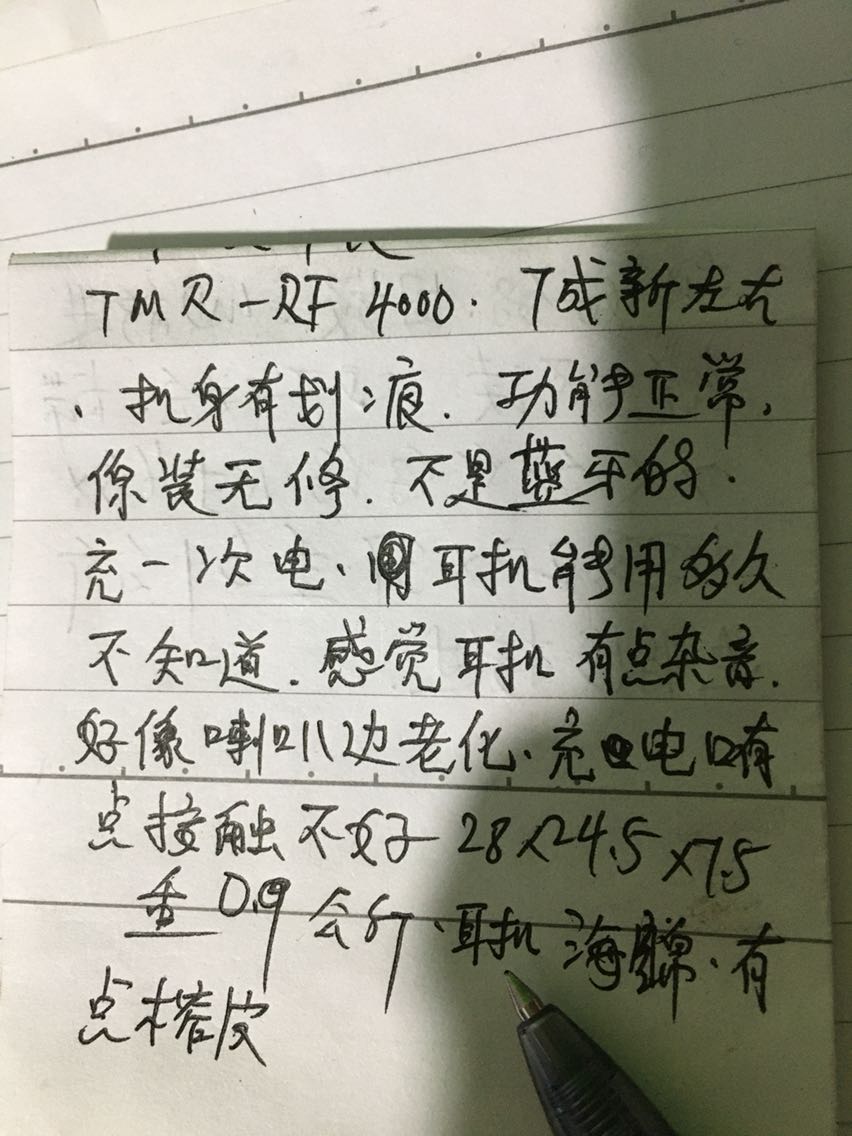 TMR-RF 4000. 7成新左右
、机身有划痕. 功能正常,
原装无修. 不是蓝牙的.
充一次电、耳机能用多久
不知道. 感觉耳机有点杂音.
好像喇叭边老化、充电口有
点接触不好 28×24.5×7.5
重0.9公斤、耳机海绵、有
点掉皮